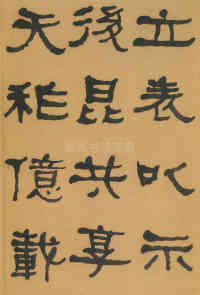 立表以示
後昆共享
天祚億載